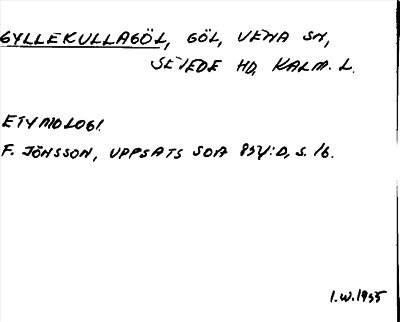 GYLLEKULLAGÖL, GÖL, VENA SN,
SEVEDE HD, KALM. L.
ETYMOLOGI.
F. JÖNSSON, UPPSATS SOA 854:D, S. 16.
I.W. 1955